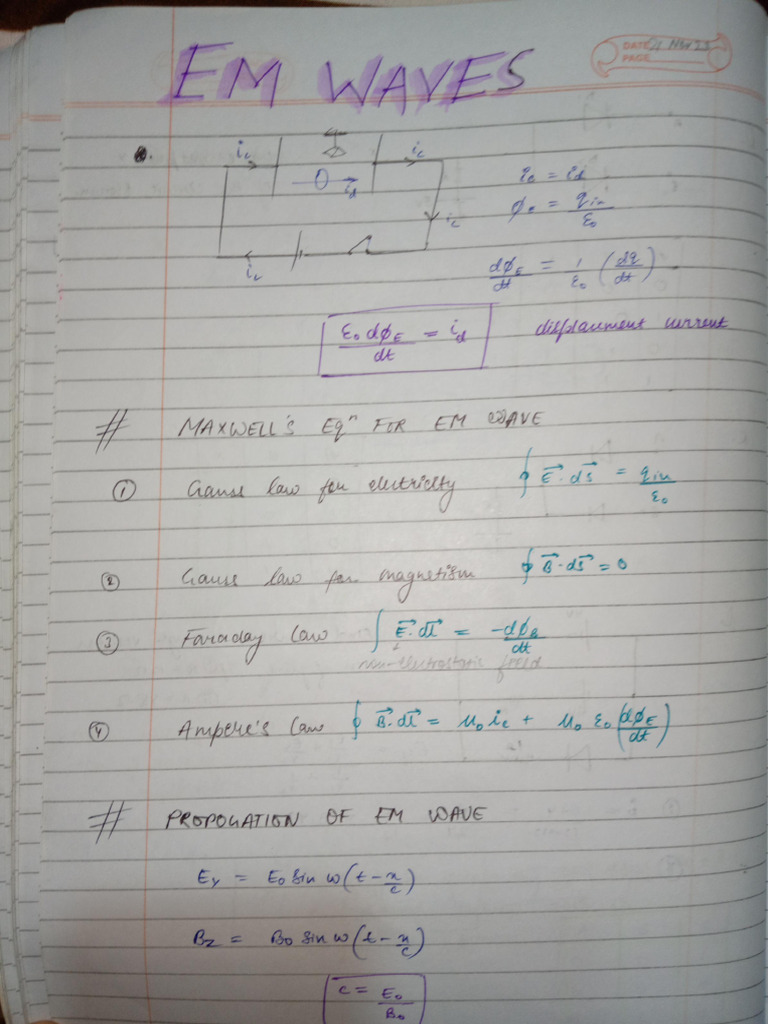 DATE NOV 23
PAGE
EM WAVES
i_c i_c
i_d
i_c
i_c
i_c = i_d
ϕ_e = q_in / ε_0
dϕ_E / dt = 1 / ε_0 (dq / dt)
ε_0 dϕ_E / dt = i_d displacment current
# MAXWELL'S Eqⁿ FOR EM WAVE
① Gauss law for electricity ∮ E⃗ · ds⃗ = q_in / ε_0
② Gauss law for magnetism ∮ B⃗ · ds⃗ = 0
③ Faraday law ∫ E⃗ · dl⃗ = -dϕ_B / dt
non-electrostatic field
④ Ampere's law ∮ B⃗ · dl⃗ = μ_0 i_c + μ_0 ε_0 (dϕ_E / dt)
# PROPOGATION OF EM WAVE
E_y = E_0 sin ω (t - x/c)
B_z = B_0 sin ω (t - x/c)
c = E_0 / B_0